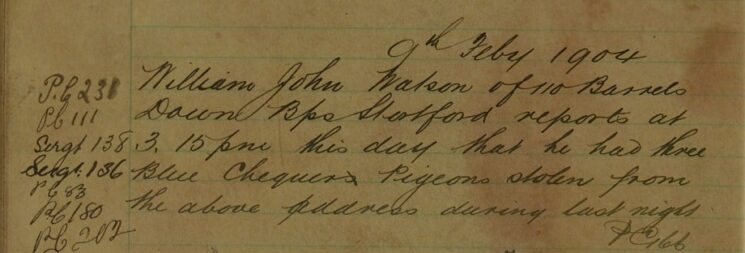 9th Feby 1904
P.C 231 William John Watson of 110 Barrels
PC 111 Down Bps Stortford reports at
Sergt 138 3. 15 pm this day that he had three
Sergt. 136 Blue Chequers Pigeons stolen from
PC 83 the above address during last night
PC 180
PC 202
PC 166